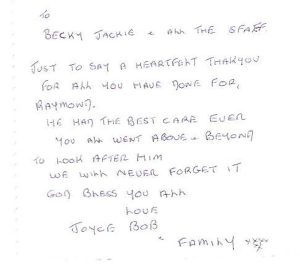 To
BECKY JACKIE & ALL THE STAFF
JUST TO SAY A HEARTFELT THAKYOU
FOR ALL YOU HAVE DONE FOR,
RAYMOND.
HE HAD THE BEST CARE EVER
YOU ALL WENT ABOVE & BEYOND
TO LOOK AFTER HIM
WE WILL NEVER FORGET IT
GOD BLESS YOU ALL
LOVE
JOYCE BOB
" FAMILY xxxx
x